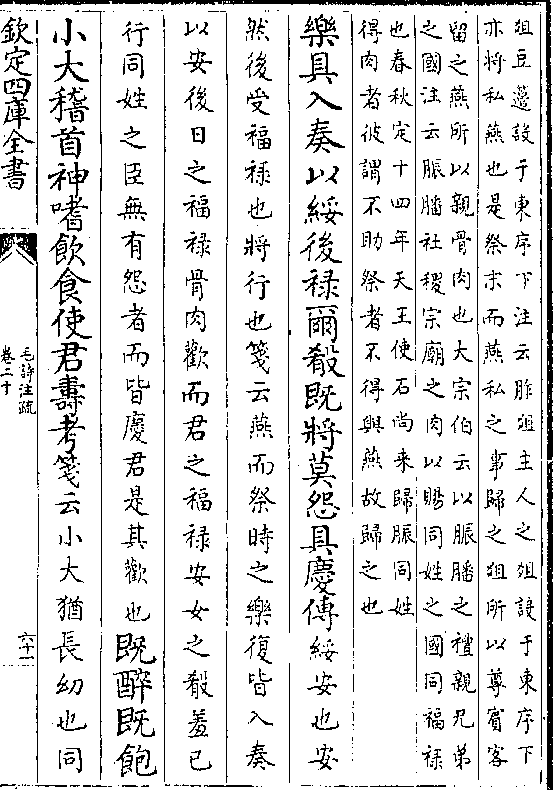 俎豆籩設于東序下注云胙俎主人之俎設于東序下
亦將私燕也是祭末而燕私之事歸之俎所以尊賓客
留之燕所以親骨肉也大宗伯云以脤膰之禮親兄弟
之國注云脤膰社稷宗廟之肉以賜同姓之國同福禄
也春秋定十四年天王使石尚来歸脤同姓
得肉者彼謂不助祭者不得與燕故歸之也
樂具入奏以綏後禄爾殽既將莫怨具慶傳綏安也安
然後受福禄也將行也箋云燕而祭時之樂復皆入奏
以安後日之福禄骨肉歡而君之福禄安女之殽羞已
行同姓之臣無有怨者而皆慶君是其歡也既醉既飽
小大稽首神嗜飲食使君壽考箋云小大猶長幼也同
欽定四庫全書
毛詩注疏
卷二十
六十一